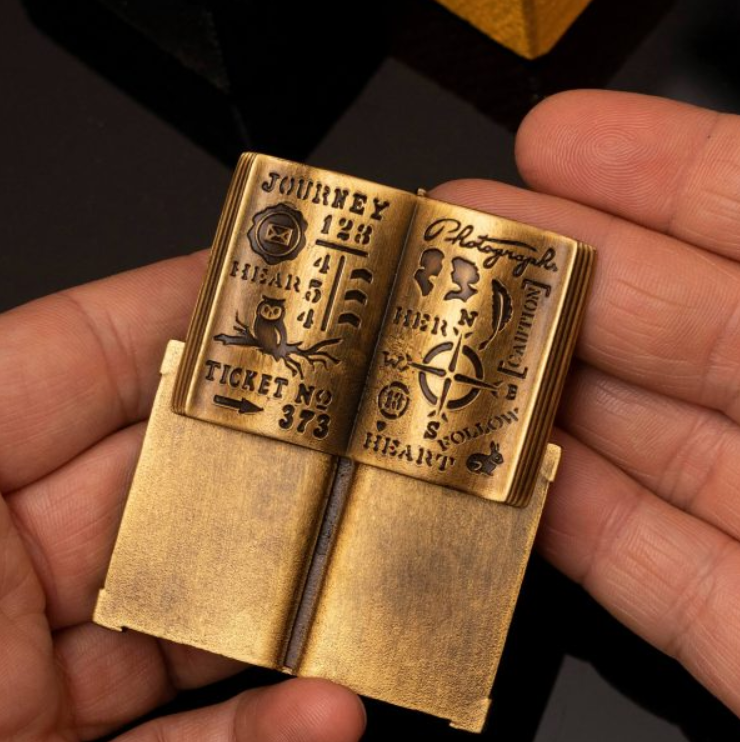 JOURNEY
123
HEAR
4
5
4
TICKET NO
373
Photographs
HER
N
[CAUTION]
W
E
13
S
FOLLOW
HEART